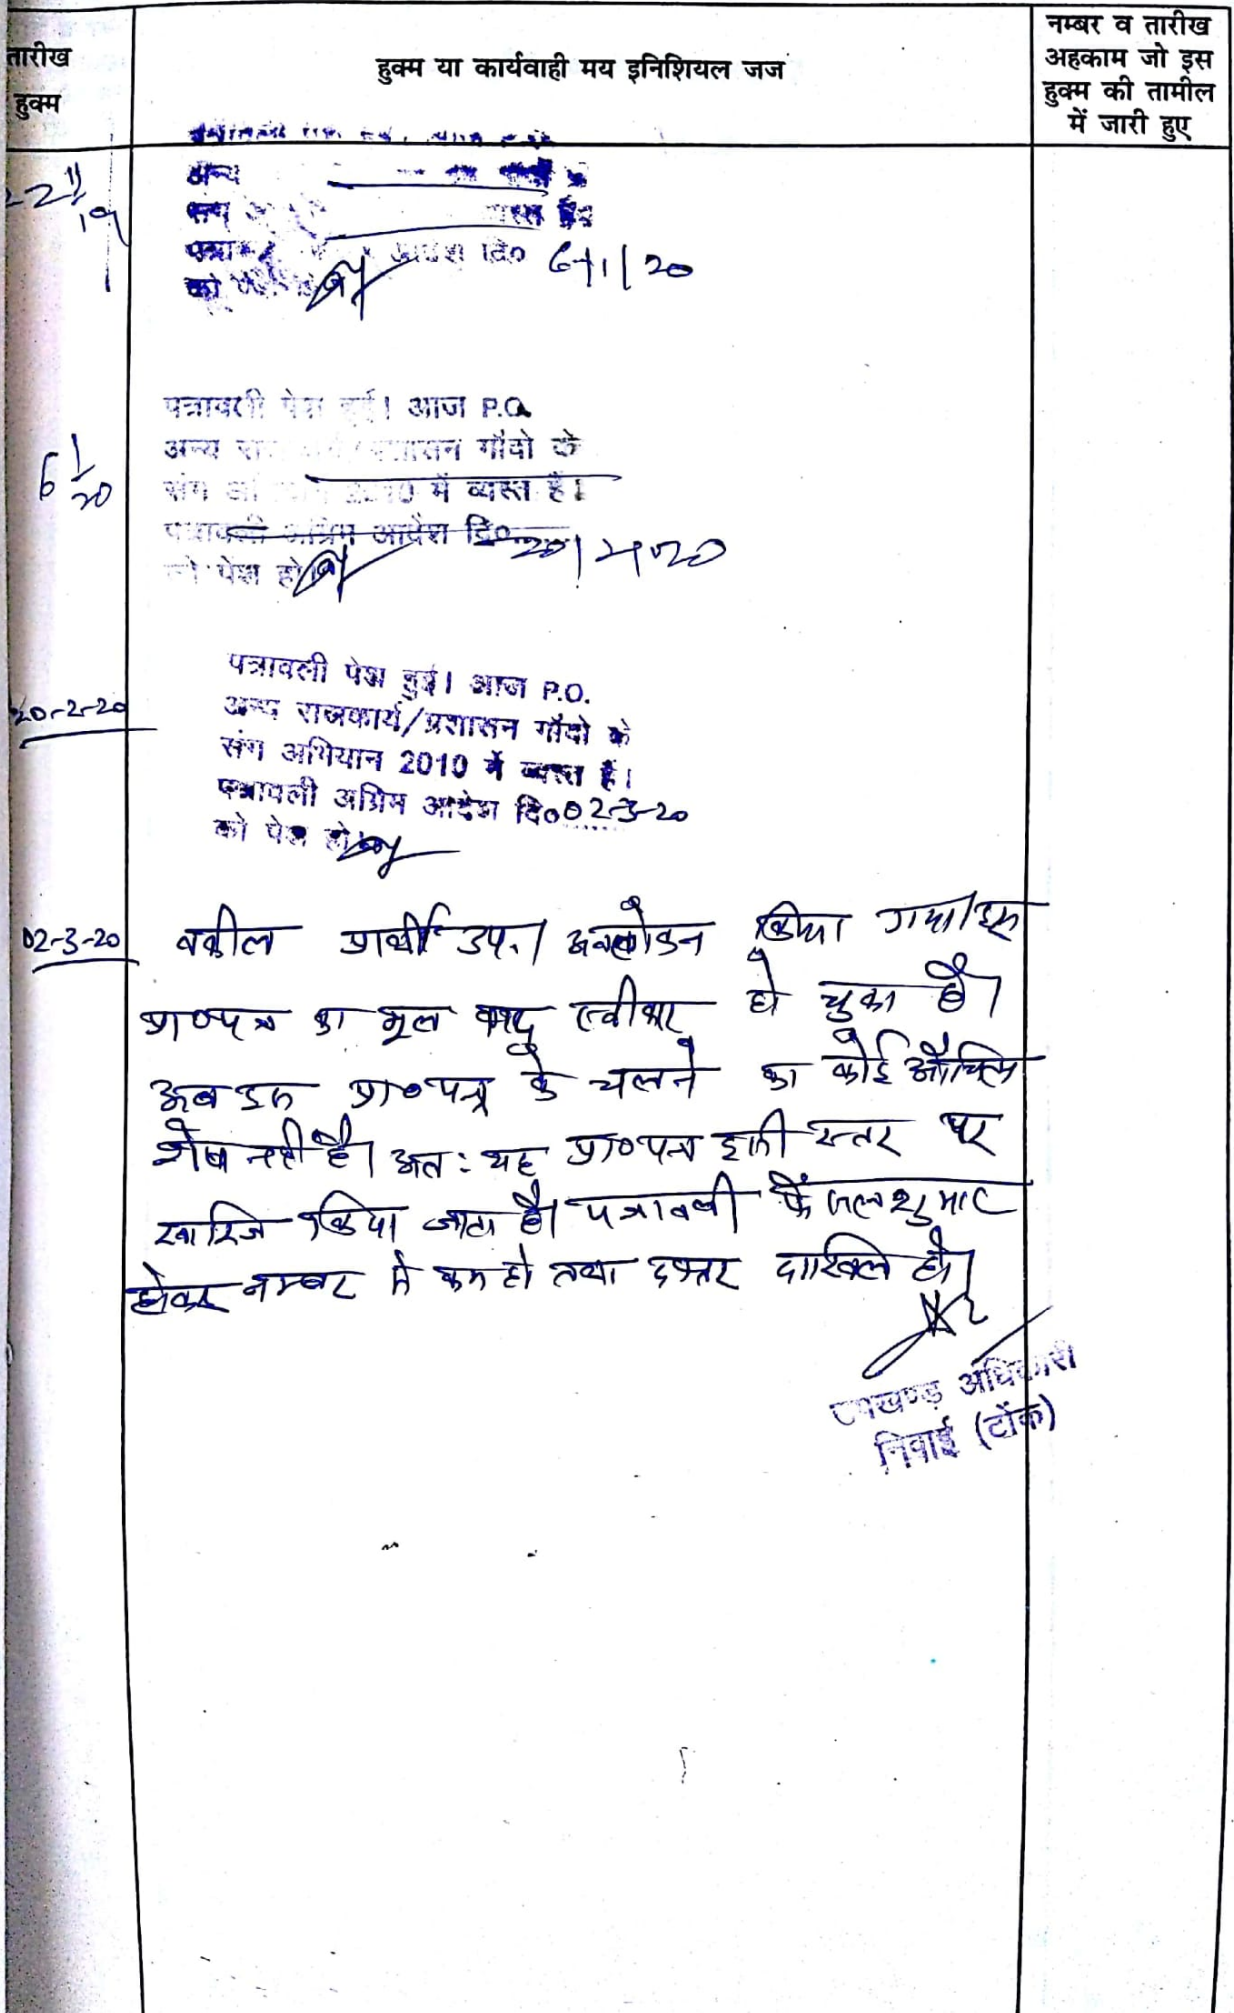 तारीख
हुक्म
हुक्म या कार्यवाही मय इनिशियल जज
नम्बर व तारीख
अहकाम जो इस
हुक्म की तामील
में जारी हुए
22 11/19
अन्य
आदेश दि० 6/1/20
को
6 1/20
पत्रावली पेश हुई। आज P.O.
अन्य प्रशासन गाँवो के
संग 2010 में व्यस्त है।
पत्रावली अग्रिम आदेश दि० 20/2/20
को पेश हो
20-2-20
पत्रावली पेश हुई। आज P.O.
अन्य राजकार्य/प्रशासन गाँवो के
संग अभियान 2010 में व्यस्त है।
पत्रावली अग्रिम आदेश दि० 02-3-20
को पेश हो।
02-3-20
वकील प्रार्थी उप.। अवलोकन किया गया। इस
प्रा०पत्र का मूल वाद स्वीकार हो चुका है।
अब इस प्रा०पत्र के चलने का कोई औचित्य
शेष नहीं है। अत: यह प्रा०पत्र इसी स्तर पर
खारिज किया जाता है। पत्रावली फैसल शुमार
होकर नम्बर से कम हो तथा दफ्तर दाखिल हो।
उपखण्ड अधिकारी
निवाई (टोंक)